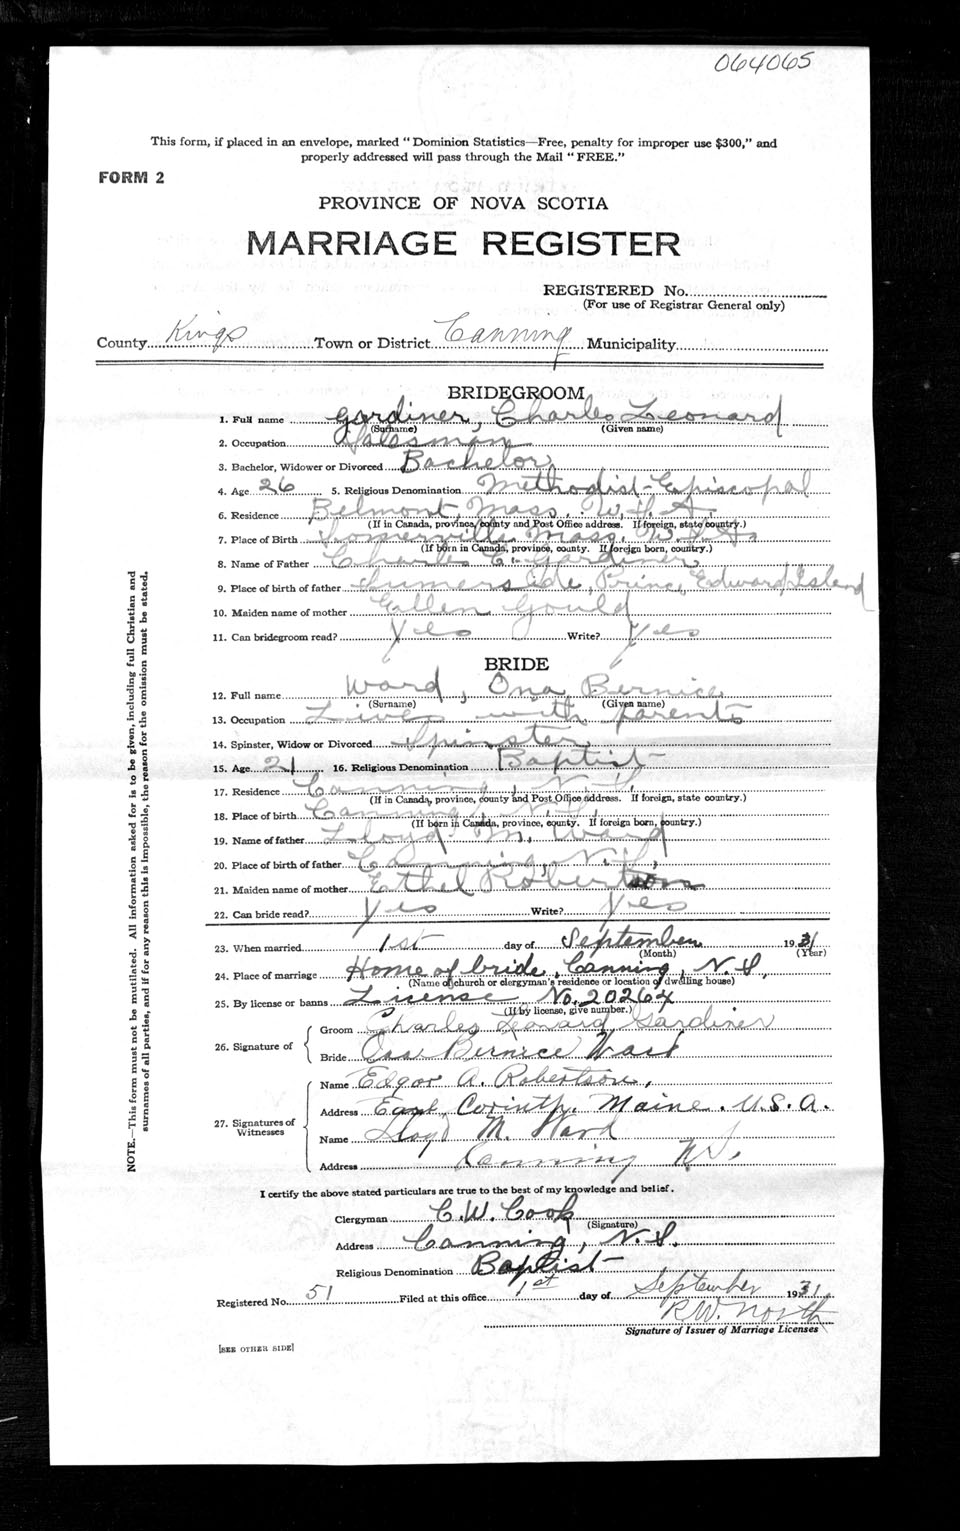 064065
This form, if placed in an envelope, marked "Dominion Statistics—Free, penalty for improper use $300," and
properly addressed will pass through the Mail "FREE."
FORM 2
PROVINCE OF NOVA SCOTIA
MARRIAGE REGISTER
REGISTERED No.
(For use of Registrar General only)
County Kings Town or District Canning Municipality
BRIDEGROOM
1. Full name Gardiner, Charles Leonard
(Surname) (Given name)
2. Occupation Salesman
3. Bachelor, Widower or Divorced Bachelor
4. Age 26 5. Religious Denomination Methodist-Episcopal
6. Residence Belmont, Mass. U.S.A.
(If in Canada, province, county and Post Office address. If foreign, state country.)
7. Place of Birth Somerville Mass. U.S.A.
(If born in Canada, province, county. If foreign born, country.)
8. Name of Father Charles C. Gardiner
9. Place of birth of father Summerside, Prince Edward Island
10. Maiden name of mother Ellen Gould
11. Can bridegroom read? Yes Write? Yes
BRIDE
12. Full name Ward, Ona Bernice
(Surname) (Given name)
13. Occupation Lives with parents
14. Spinster, Widow or Divorced Spinster
15. Age 21 16. Religious Denomination Baptist
17. Residence Canning, N.S.
(If in Canada, province, county and Post Office address. If foreign, state country.)
18. Place of birth Canning, N.S.
(If born in Canada, province, county. If foreign born, country.)
19. Name of father Lloyd M. Ward
20. Place of birth of father Canning, N.S.
21. Maiden name of mother Ethel Robertson
22. Can bride read? Yes Write? Yes
23. When married 1st day of September 1931
(Month) (Year)
24. Place of marriage Home of bride, Canning, N.S.
(Name of church or clergyman's residence or location of dwelling house)
25. By license or banns License No. 20264
(If by license, give number.)
26. Signature of
Groom Charles Leonard Gardiner
Bride Ona Bernice Ward
27. Signatures of Witnesses
Name Edgar A. Robertson,
Address East Corinth, Maine. U.S.A.
Name Lloyd M. Ward
Address Canning N.S.
I certify the above stated particulars are true to the best of my knowledge and belief.
Clergyman C.W. Cook
(Signature)
Address Canning, N.S.
Religious Denomination Baptist
Registered No. 51 Filed at this office 1st day of September 1931
R.W. North
Signature of Issuer of Marriage Licenses
[SEE OTHER SIDE]
NOTE.—This form must not be mutilated. All information asked for is to be given, including full Christian and
surnames of all parties, and if for any reason this is impossible, the reason for the omission must be stated.